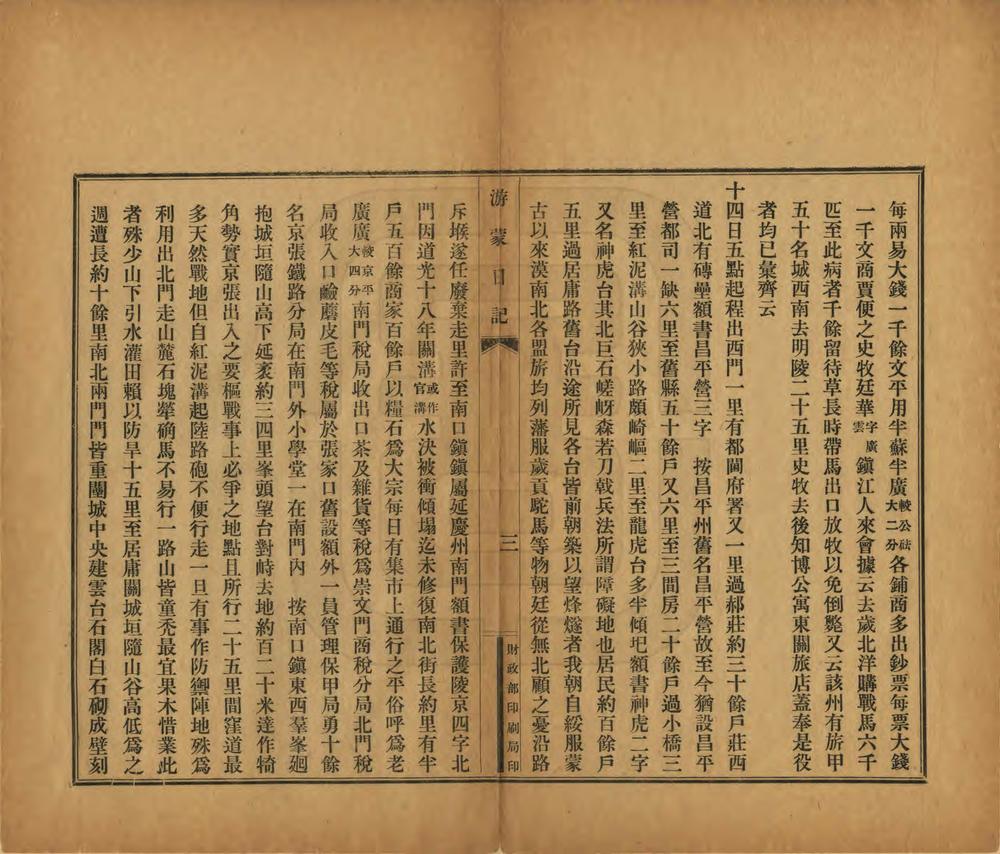 每兩易大錢一千餘文平用半蘇半廣較公砝大二分各鋪商多出鈔票每票大錢
一千文商賈便之史牧廷華字廣雲鎮江人來會據云去歲北洋購戰馬六千
匹至此病者千餘留待草長時帶馬出口放牧以免倒斃又云該州有旂甲
五十名城西南去明陵二十五里史牧去後知博公寓東關旅店蓋奉是役
者均已彙齊云
十四日五點起程出西門一里有都閫府署又一里過郝莊約三十餘戶莊西
道北有磚壘額書昌平營三字　按昌平州舊名昌平營故至今猶設昌平
營都司一缺六里至舊縣五十餘戶又六里至三間房二十餘戶過小橋三
里至紅泥溝山谷狹小路頗崎嶇二里至龍虎台多半傾圮額書神虎二字
又名神虎台其北巨石嵯岈森若刀戟兵法所謂障礙地也居民約百餘戶
五里過居庸路舊台沿途所見各台皆前朝築以望烽燧者我朝自綏服蒙
古以來漠南北各盟旂均列藩服歲貢駝馬等物朝廷從無北顧之憂沿路
游蒙日記
三
財政部印刷局印
斥堠遂任廢棄走里許至南口鎮鎮屬延慶州南門額書保護陵京四字北
門因道光十八年關溝或作官溝水決被衝傾塌迄未修復南北街長約里有半
戶五百餘商家百餘戶以糧石爲大宗每日有集市上通行之平俗呼爲老
廣廣較京平大四分南門稅局收出口茶及雜貨等稅爲崇文門商稅分局北門稅
局收入口鹼蘑皮毛等稅屬於張家口舊設額外一員管理保甲局勇十餘
名京張鐵路分局在南門外小學堂一在南門內　按南口鎮東西羣峯廻
抱城垣隨山高下延袤約三四里峯頭望台對峙去地約百二十米達作犄
角勢實京張出入之要樞戰事上必爭之地點且所行二十五里間窪道最
多天然戰地但自紅泥溝起陸路砲不便行走一旦有事作防禦陣地殊爲
利用出北門走山麓石塊犖确馬不易行一路山皆童禿最宜果木惜業此
者殊少山下引水灌田賴以防旱十五里至居庸關城垣隨山谷高低爲之
週遭長約十餘里南北兩門門皆重闉城中央建雲台石閣白石砌成壁刻